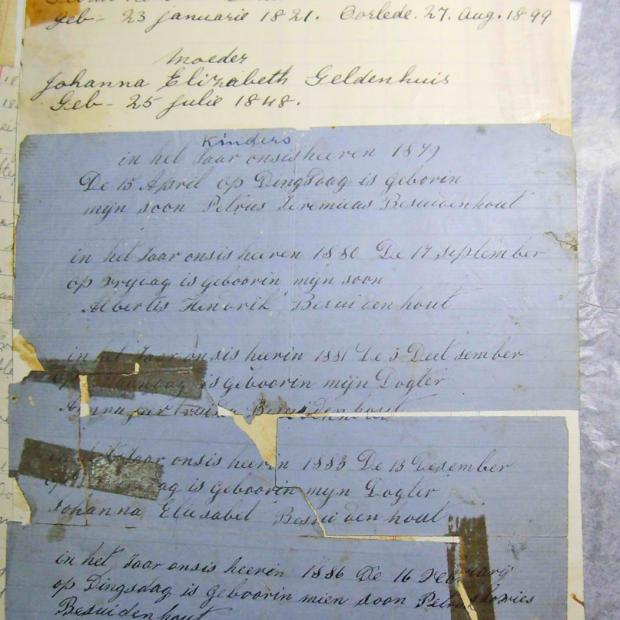 geb- 23 Januarie 1821. Oorlede. 27. Aug. 1899
Moeder
Johanna Elizabeth Geldenhuis
Geb- 25 Julie 1848.
Kinders
in het Jaar onsis heeren 1879
De 15 April op Dingsdaag is geborin
mijn soon Petrus Jeremieas Besuidenhout
in het Jaar onsis heeren 1880 De 17 september
op vrijdag is geboorin mijn soon
Albertis Hendrik Besuidenhout
in het Jaar onsis heerin 1881 De 5 Deetsember
is geboorin mijn Dogter
Besuidenhout
Jaar onsis heerin 1883 De 13 Desember
is geboorin myn Dogter
Johanna Eliesabet Besuidenhout
in het Jaar onsis heerin 1886 De 16
op Dingsdag is geboorin mien soon
Besuidenhout